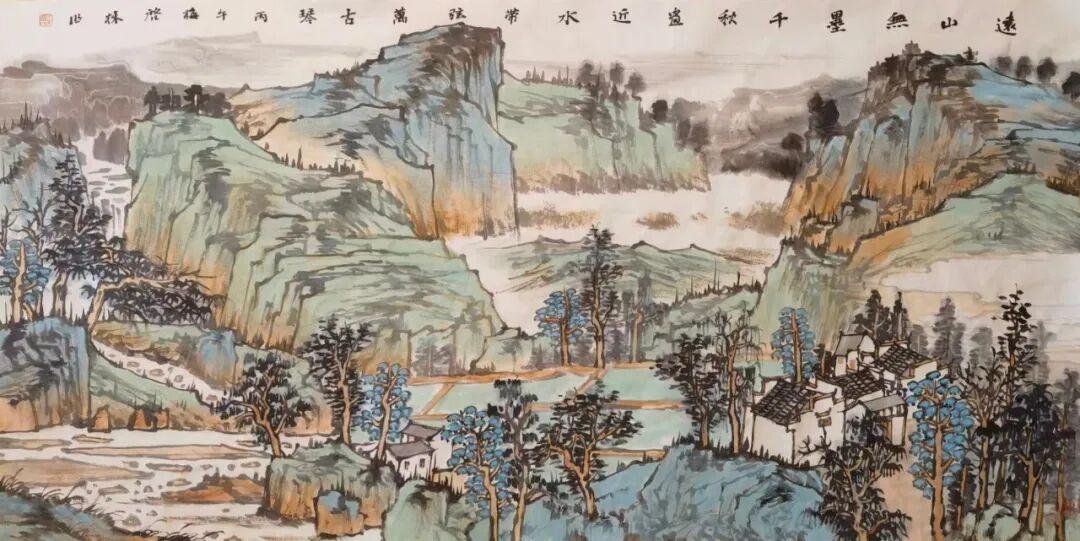 遠山無墨千秋畫近水帶弦萬古琴丙午梅啓林